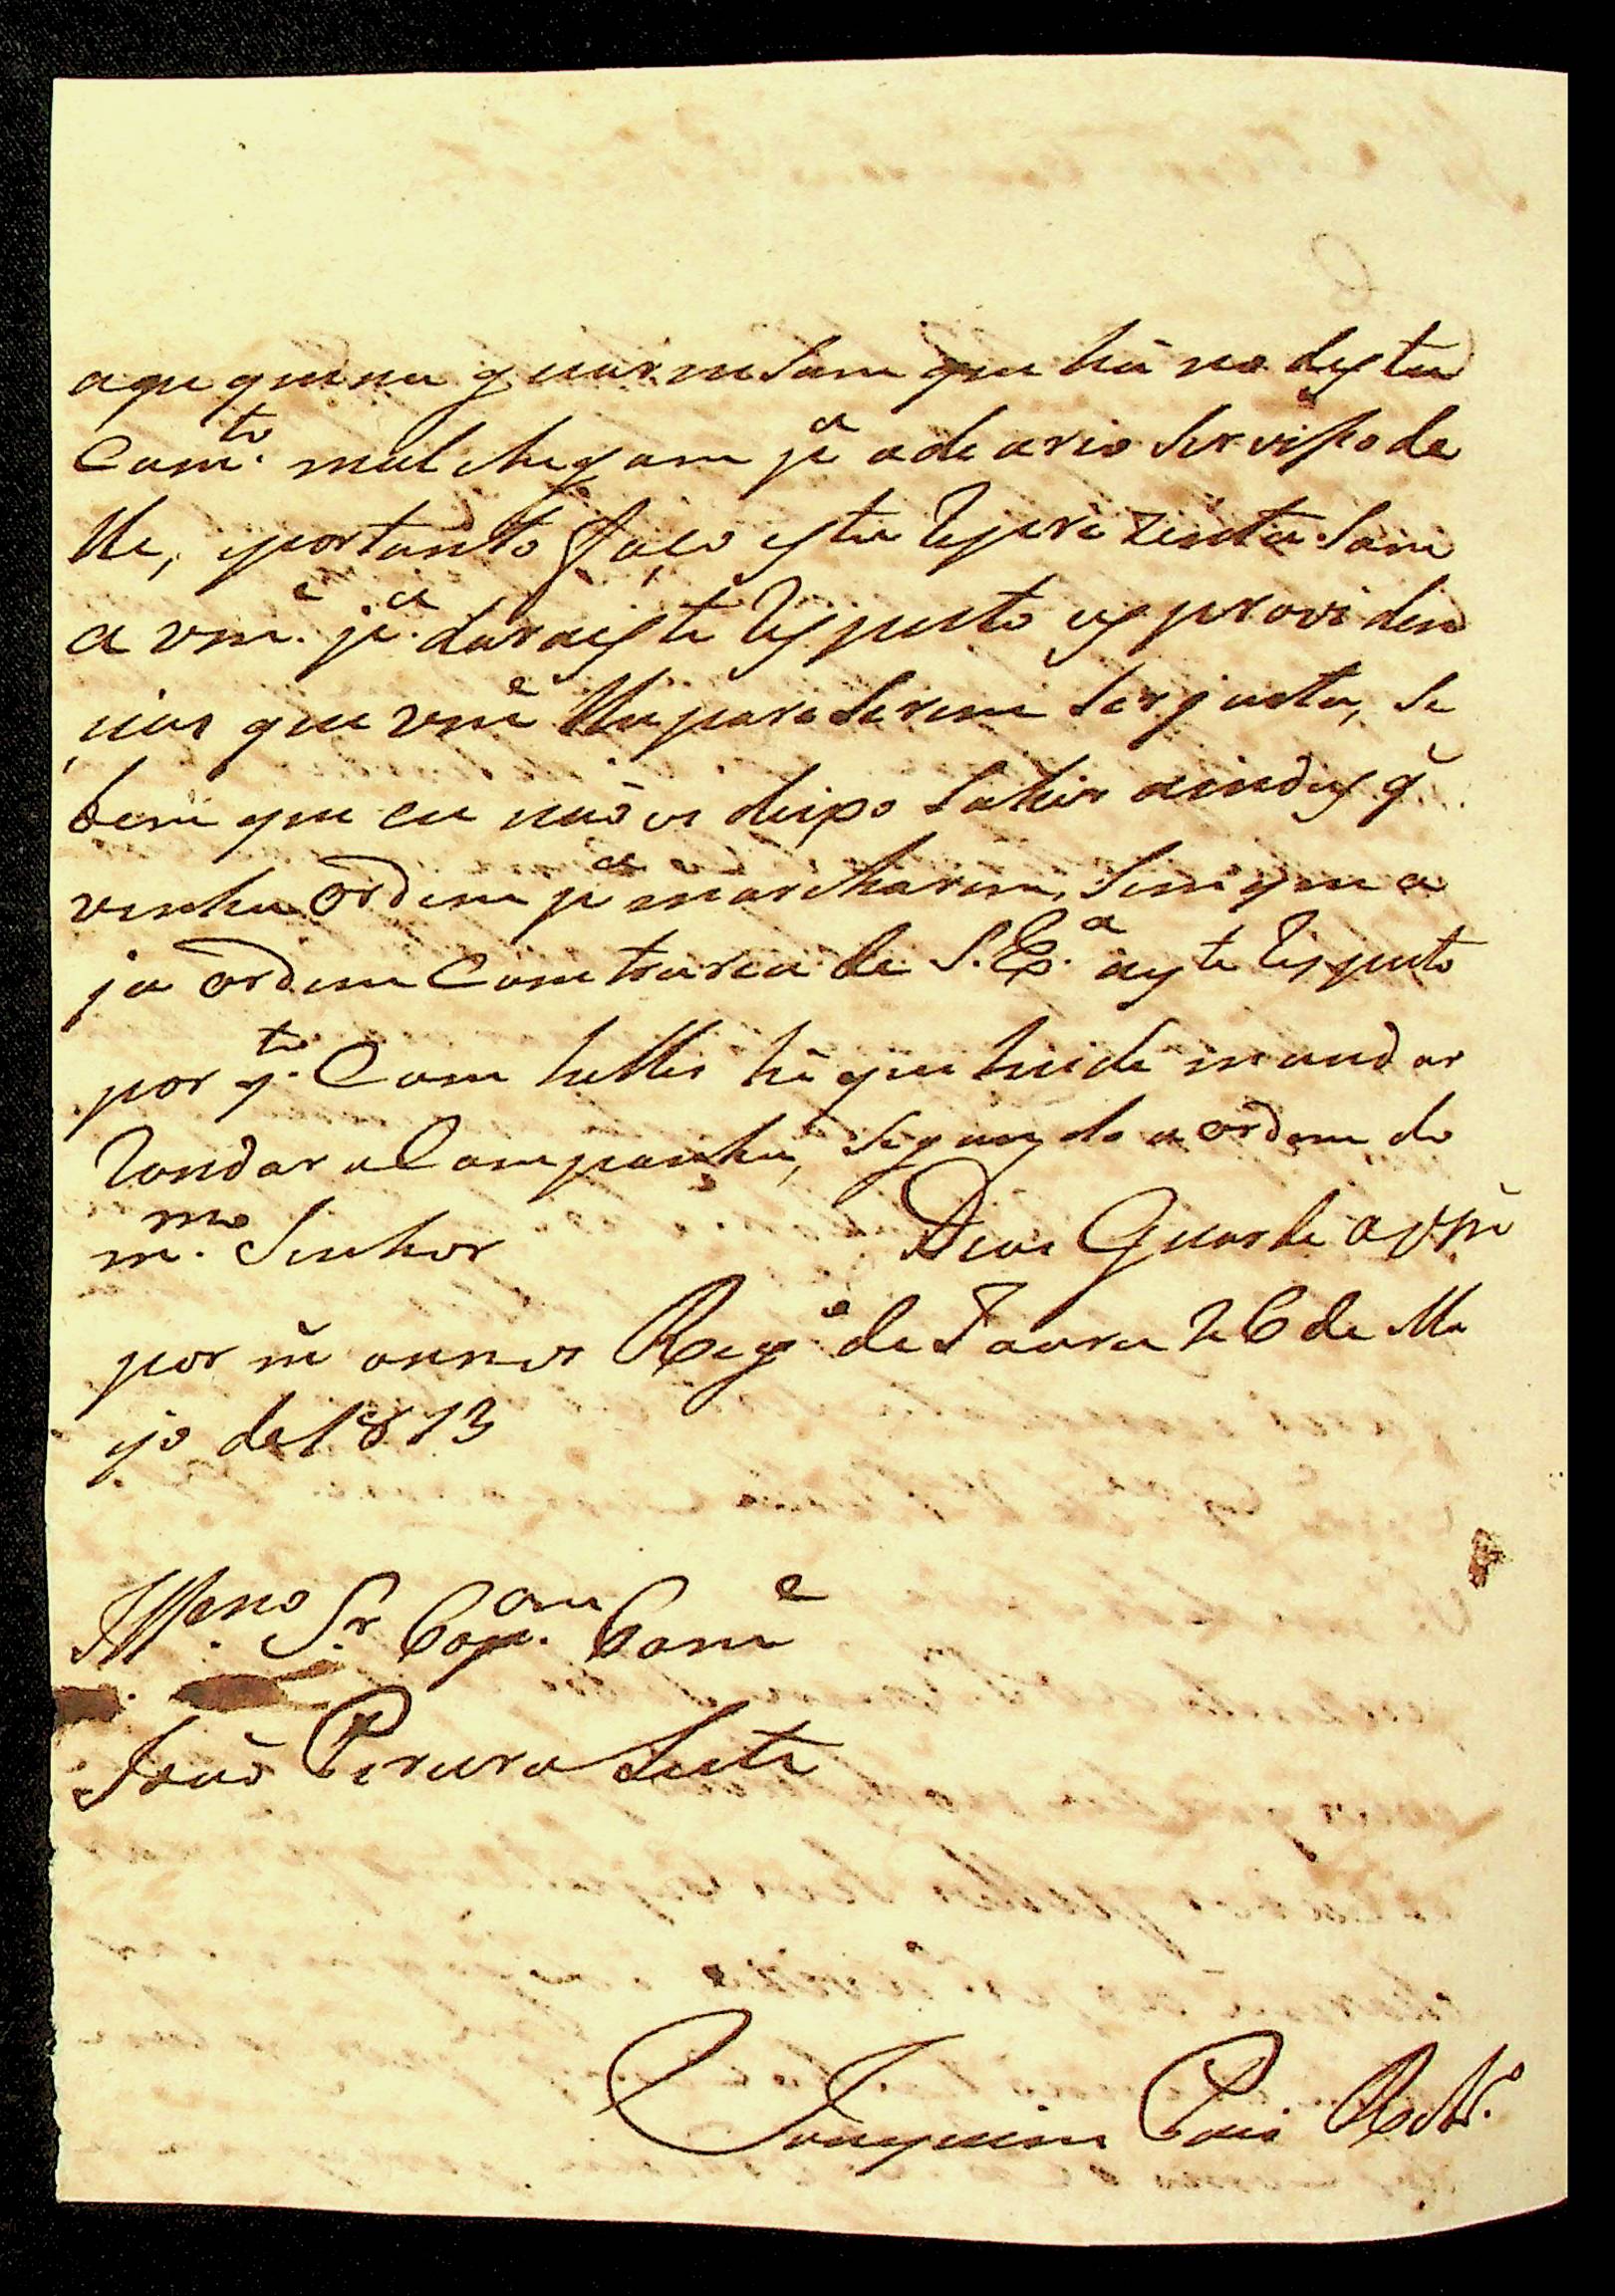 apequena guarnesam que há no destaa
Cam.to mal chegam pa adeario Servisso de
lle, eportanto Faço esta Reprezentasam
a vm.e pa. dar aeste Respeito as providen
cias que vm.e lhe pareserem Ser justa, Se
bem que eu naõ os deixo Sahir aindas q̃
venha Ordem pa marcharem, Sem que a
ja Ordem Comtraria de S. Ex.a aeste Respeito
por q.to Com helles he que hei de mandar
Rondar a Companha, Segundo a Ordem do
m.mo Senhor Deos Guarde a vm.e
por m.s annos Reg.o de 26 de Ma
yo de 1813
Illmo. Sr. Cap.am Com.e
Joaõ Pereira Leite
Joaquim Pais